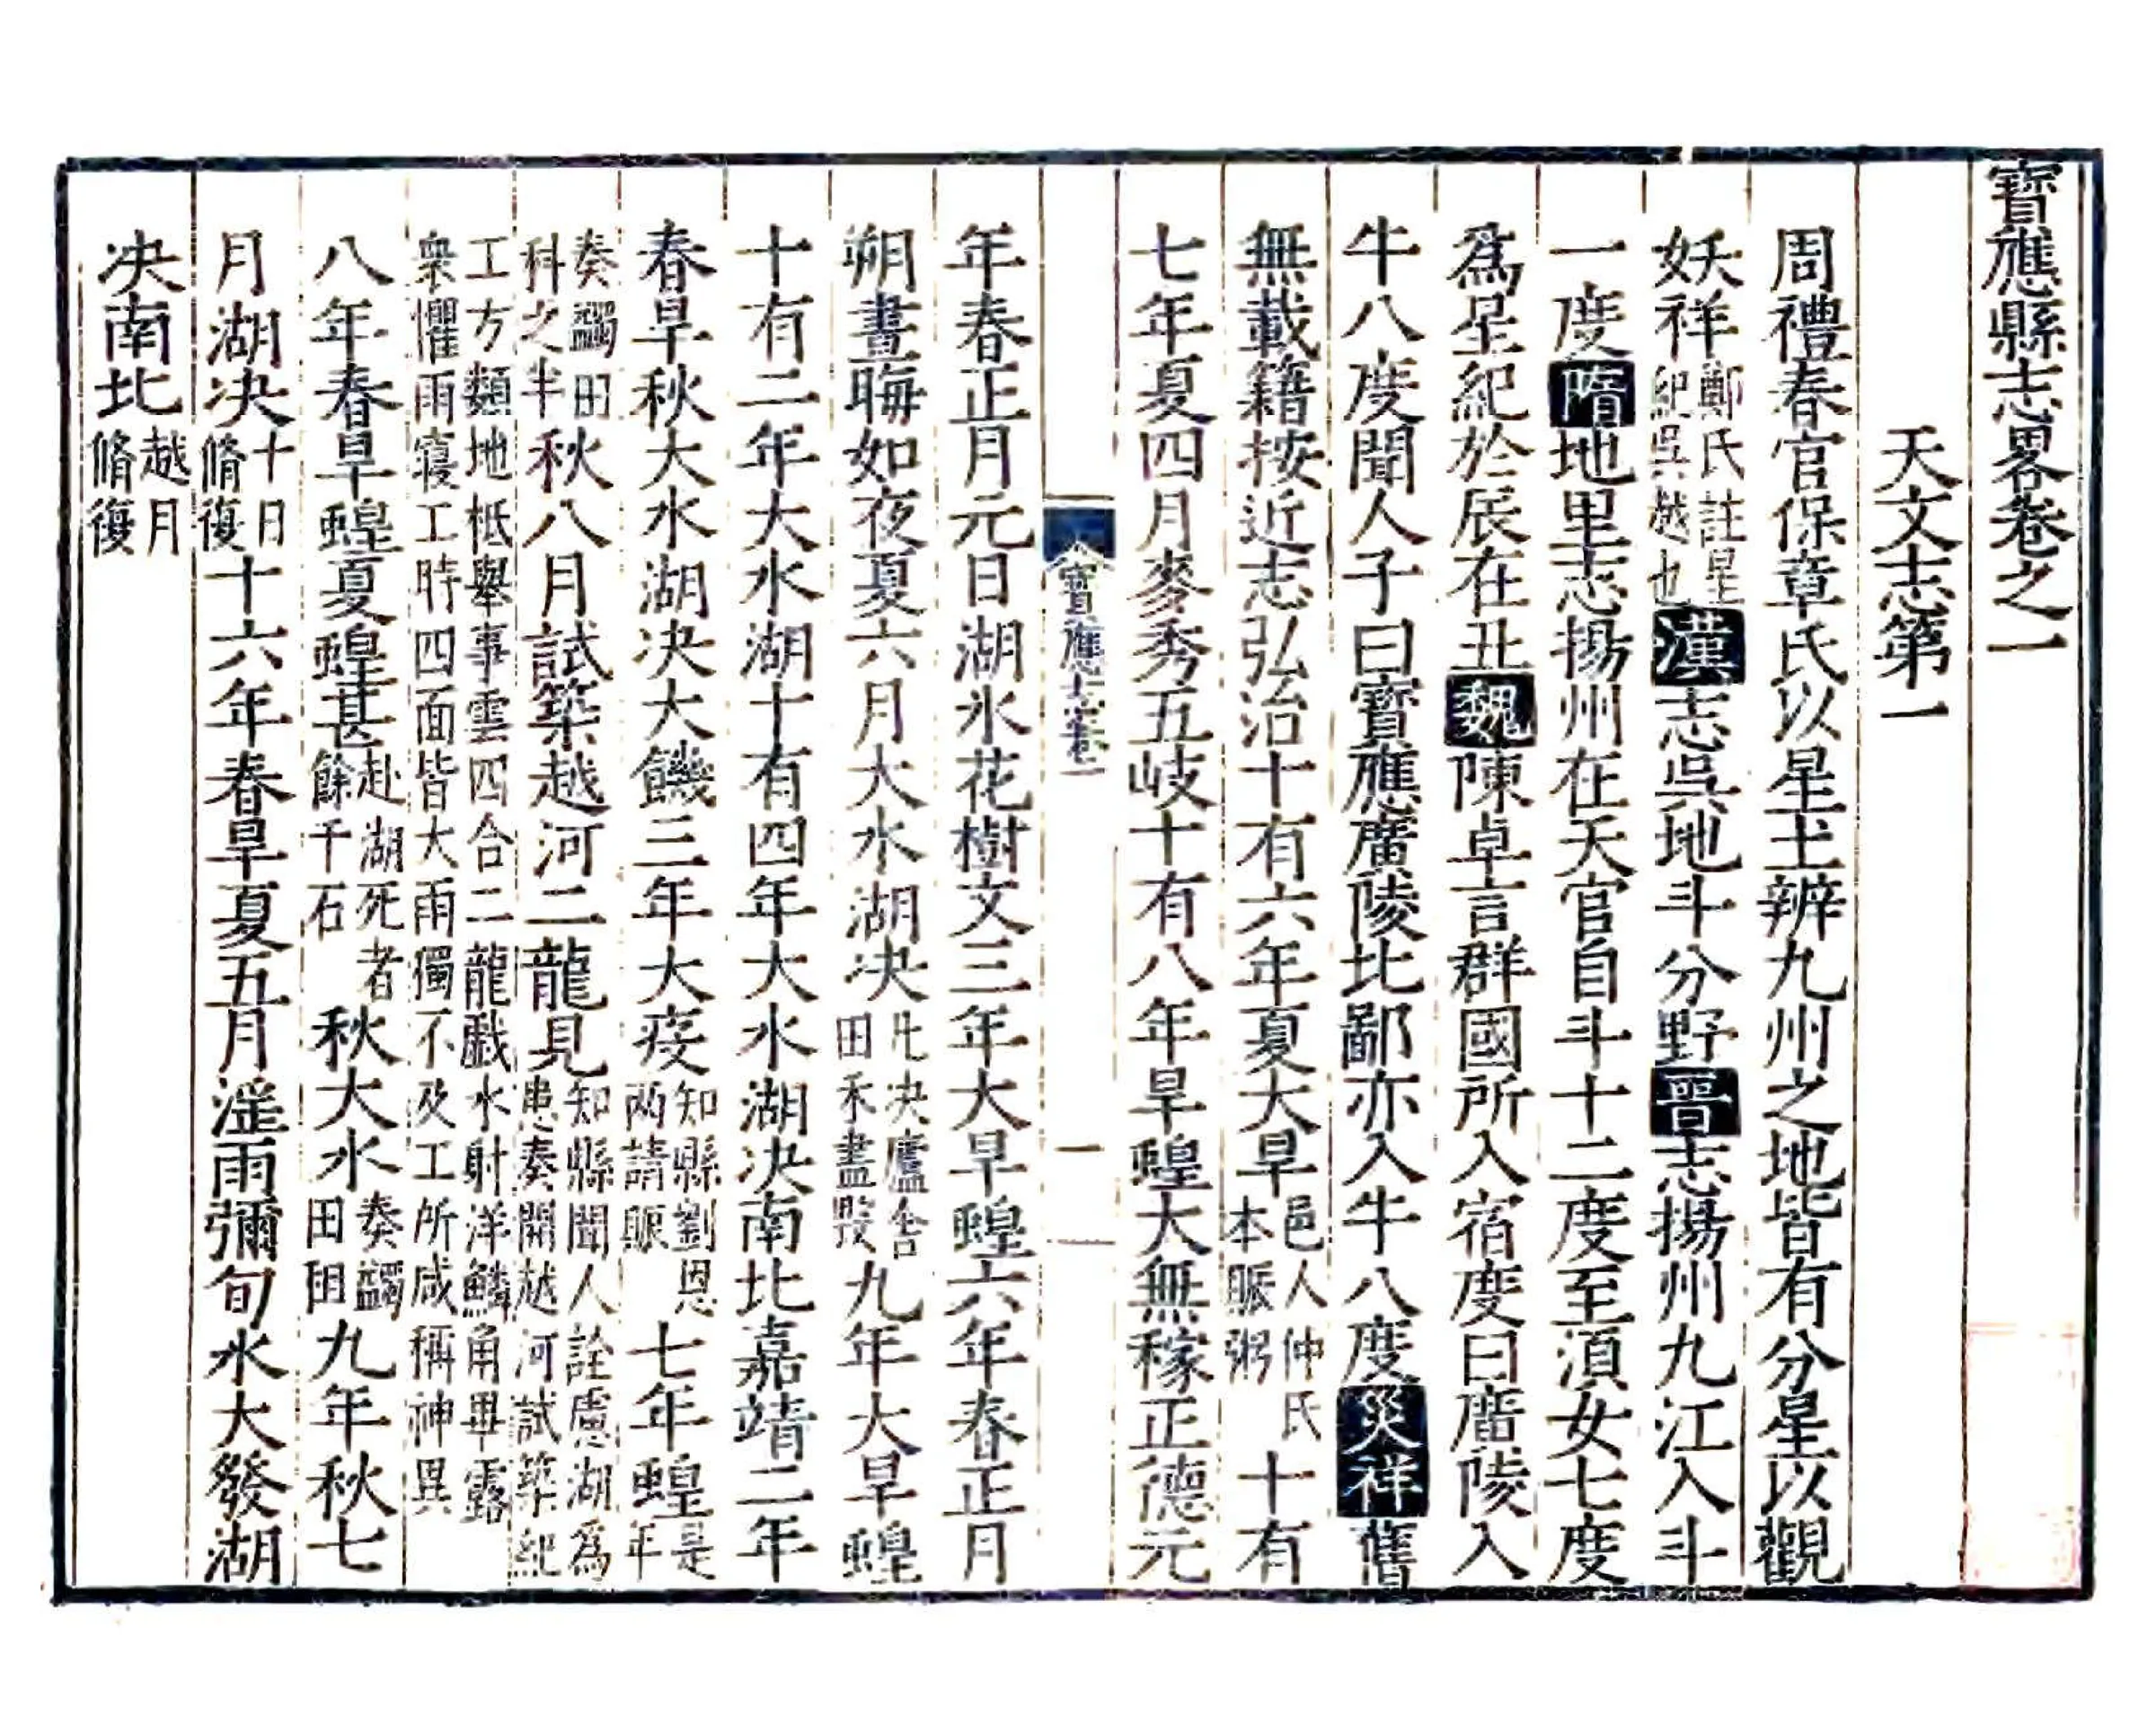 寶應縣志畧卷之一
天文志第一
周禮春官保章氏以星土辨九州之地皆有分星以觀
妖祥鄭氏註星紀吳越也漢志吳地斗分野晉志揚州九江入斗
一度隋地里志揚州在天官自斗十二度至須女七度
爲星紀於辰在丑魏陳卓言群國所入宿度曰廣陵入
牛八度聞人子曰寶應廣陵北鄙亦入牛八度災祥舊
無載籍按近志弘治十有六年夏大旱邑人仲氏本賑粥十有
七年夏四月麥秀五岐十有八年旱蝗大無稼正德元
寶應志卷一
一
年春正月元日湖氷花樹文三年大旱蝗六年春正月
朔晝晦如夜夏六月大水湖决凡决廬舍田禾盡毀九年大旱蝗
十有二年大水湖十有四年大水湖决南北嘉靖二年
春旱秋大水湖决大饑三年大疫知縣劉恩兩請賑七年蝗是年
奏蠲田科之半秋八月試築越河二龍見知縣聞人詮慮湖爲患奏開越河試築紀
工方類地柢舉事雲四合二龍戲水射洋鱗角畢露
衆懼雨寖工時四面皆大雨獨不及工所咸稱神異
八年春旱蝗夏蝗甚赴湖死者餘千石秋大水奏蠲田租九年秋七
月湖决十日脩復十六年春旱夏五月滛雨彌旬水大發湖
决南北越月脩復